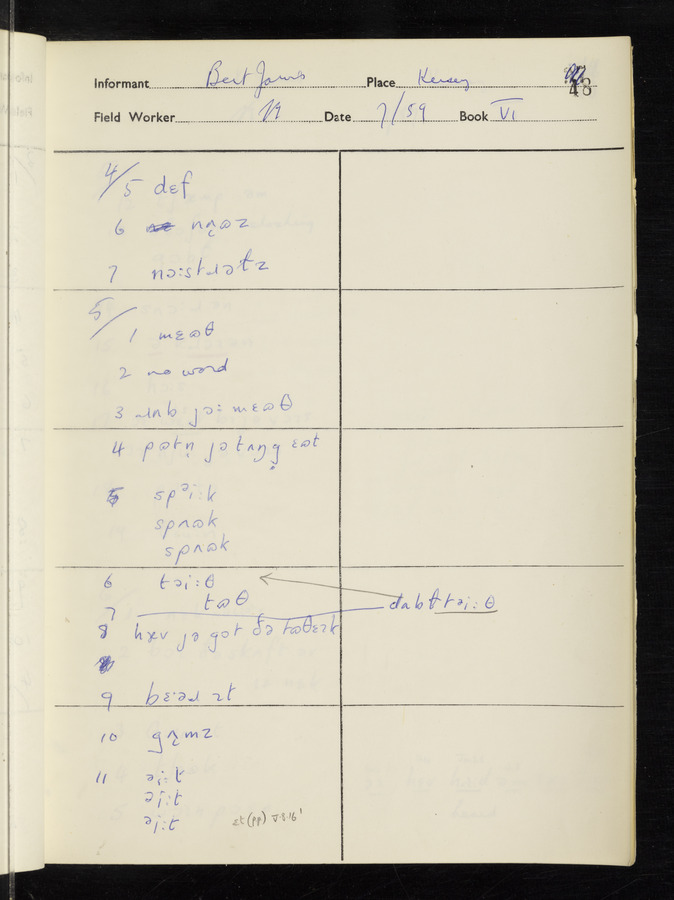 Informant Bert James Place Kersey 48
Field Worker Date 7/59 Book VI
4/5 dɛf
6 nʌ̨ɷz
7 nɔːstɹətz
5/1 mɛɷθ
2 no word
3 ɹʌb jəː mɛɷθ
4 pɷtn̩ jə tʌŋg̥ ɛɷt
5 spəiːk
spʌɷk
spʌɷk
6 təiːθ
tɷθ
7 dabθtəiːθ
8 hæv jə got ðə tɷθɛɪk
9 bɛːəd ɪt
10 gʌ̨mz
11 əiːt
əiːt
əiːt ɛt (pp) V.8.16'